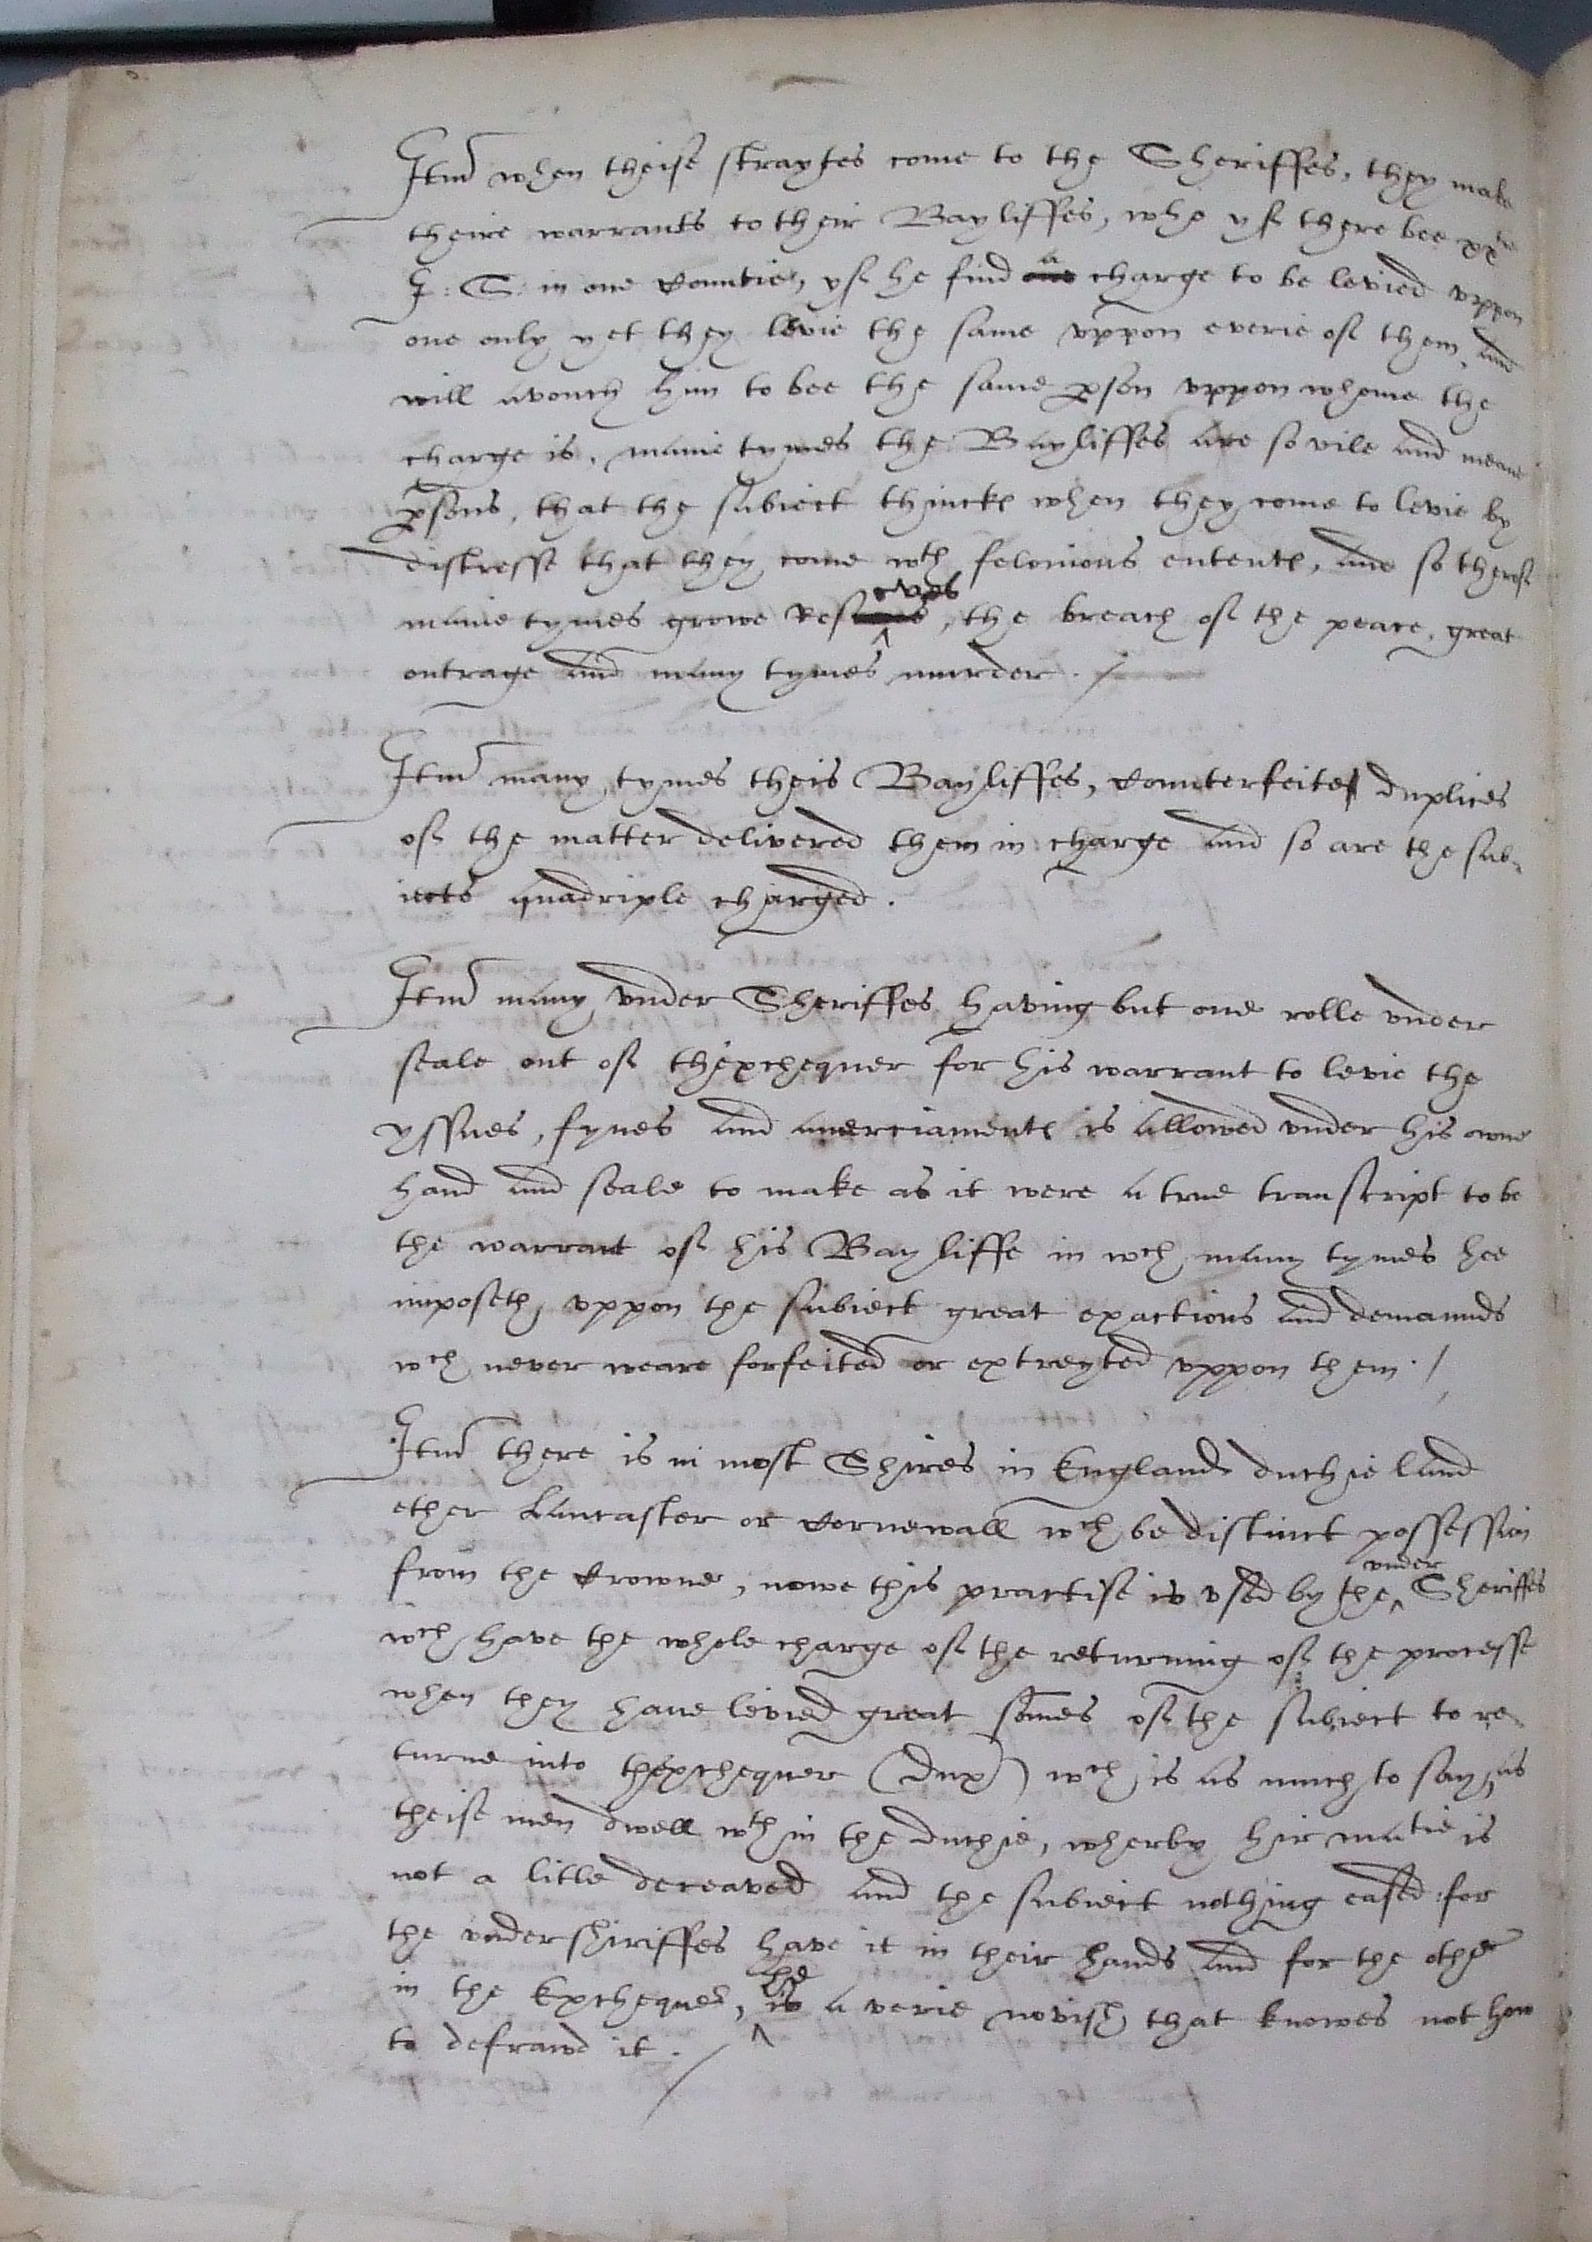 Itm when theise straytes come to the Sheriffes, they make
theire warrants to their Bayliffes, who yf there bee xxtie
I: S: in one Countie, yf he find a charge to be levied vppon
one only yet they levie the same vppon everie of them, and
will avouch him to bee the same pson vppon whome the
charge is, manie tymes the Bayliffes are so vile and meane
psons, that the subiect thinckes when they come to levie by
distresse that they come wth felonious ententes, and so therof
manie tymes growe Rescues, the breach of the peace, great
outrage and many tymes murder ./
Itm many tymes theis Bayliffes, Counterfeite duplices
of the matter delivered them in charge and so are the sub-
iects quadriple charged.
Itm many vnder Sheriffes having but one rolle vnder
seale out of thexchequer for his warrant to levie the
yssues, fynes and amerciamentes is allowed vnder his owne
hand and seale to make as it were a true transcript to be
the warrant of his Bayliffe in wch many tymes hee
imposeth vppon the subiect great exactions and demaunds
wch never weare forfeited or extreyted vppon them ./
Itm there is in most Shires in England duchie land
ether Lancaster or Cornewall wch be distinct possession
from the Crowne, nowe this practise is vsed by the vnder Sheriffes
wch have the whole charge of the returning of the processe
when they haue levied great somes of the subiect to re-
turne into thexchequer (Dux) wch is as much to say, as
theise men dwell wthin the duchie, wherby hir matie is
not a litle deceaved and the subiect nothing eased: for
the vndershiriffes have it in their hands and for the other
in the Exchequer, he is a verie novish that knowes not how
to defrawd it ./